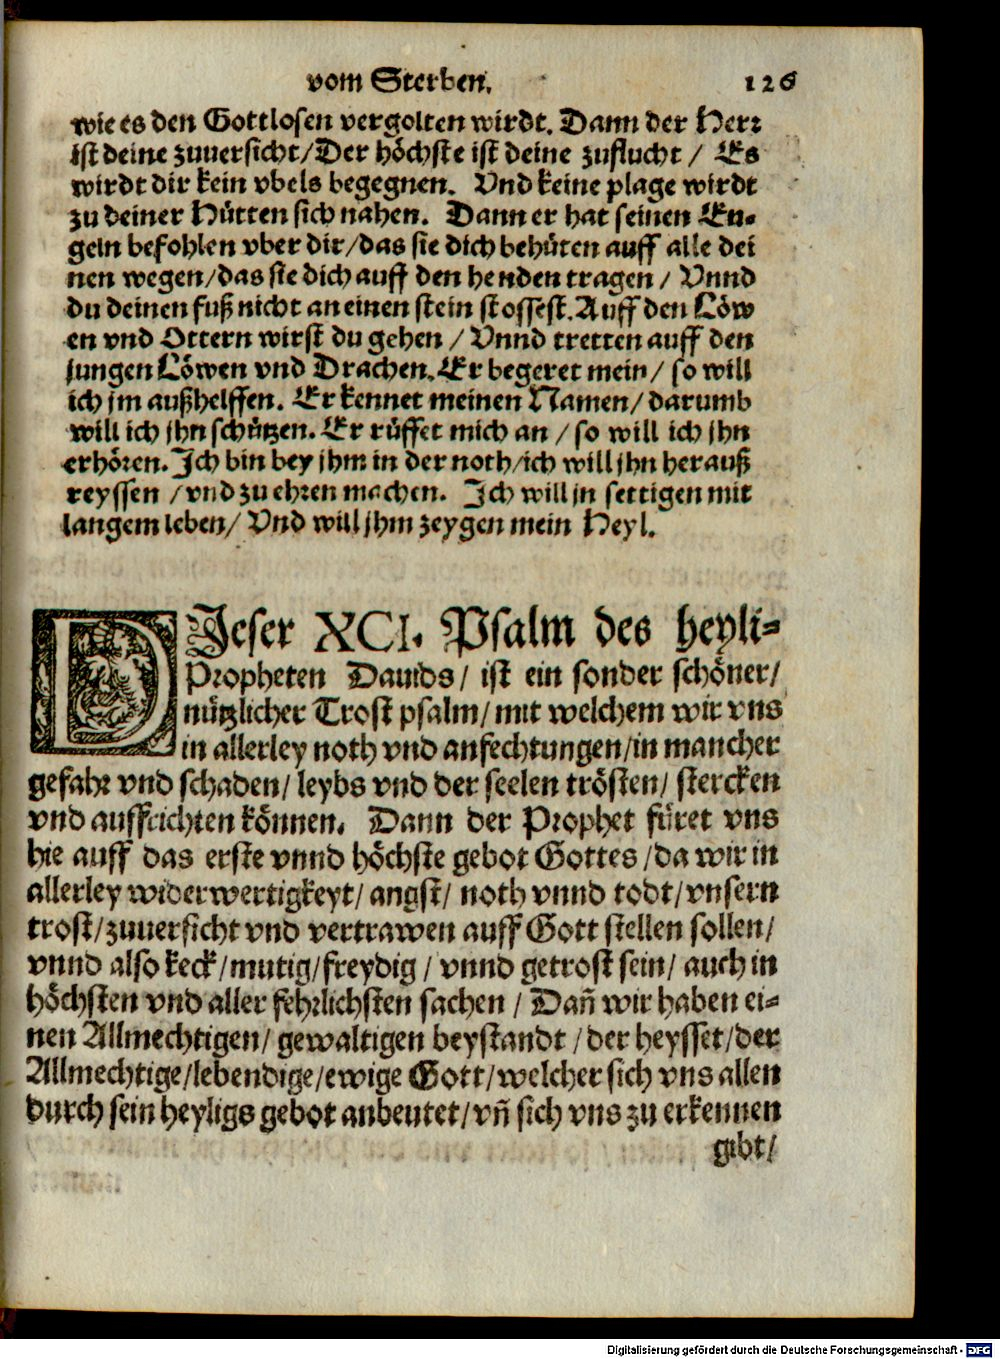 vom Sterben. 126
wie es den Gottlosen vergolten wirdt. Dann der Herr
ist deine zuuersicht/Der höchste ist deine zuflucht / Es
wirdt dir kein vbels begegnen. Vnd keine plage wirdt
zu deiner Hütten sich nahen. Dann er hat seinen En-
geln befohlen vber dir/das sie dich behüten auff alle dei
nen wegen/das sie dich auff den henden tragen / Vnnd
du deinen fuß nicht an einen stein stossest. Auff den Löw
en vnd Ottern wirst du gehen / Vnnd tretten auff den
jungen Löwen vnd Drachen. Er begeret mein/ so will
ich jm außhelffen. Er kennet meinen Namen/ darumb
will ich jhn schützen. Er rüffet mich an / so will ich jhn
erhören. Ich bin bey jhm in der noth/ich will jhn herauß
reyssen /vnd zu ehren machen. Ich will jn settigen mit
langem leben/ Vnd will jhm zeygen mein Heyl.
DIeser XCI. Psalm des heyli-
Propheten Dauids/ ist ein sonder schöner/
nützlicher Trost psalm/ mit welchem wir vns
in allerley noth vnd anfechtungen/in mancher
gefahr vnd schaden/ leybs vnd der seelen trösten/ stercken
vnd auffrichten können. Dann der Prophet füret vns
hie auff das erste vnnd höchste gebot Gottes /da wir in
allerley widerwertigkeyt/ angst/ noth vnnd todt/vnsern
trost/zuuersicht vnd vertrawen auff Gott stellen sollen/
vnnd also keck/mutig/freydig / vnnd getrost sein/ auch in
höchsten vnd aller fehrlichsten sachen / Dañ wir haben ei-
nen Allmechtigen/ gewaltigen beystandt /der heysset/der
Allmechtige/lebendige/ewige Gott/welcher sich vns allen
durch sein heyligs gebot anbeutet/vñ sich vns zu erkennen
gibt/
Digitalisierung gefördert durch die Deutsche Forschungsgemeinschaft - DFG